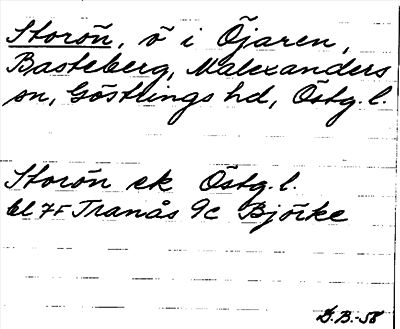 Storön, ö i Öjaren,
Basteberg, Malexanders
sn, Göstrings hd, Östg. l.
Storön ek Östg. l.
bl 7F Tranås 9c Björke
G. B. -58